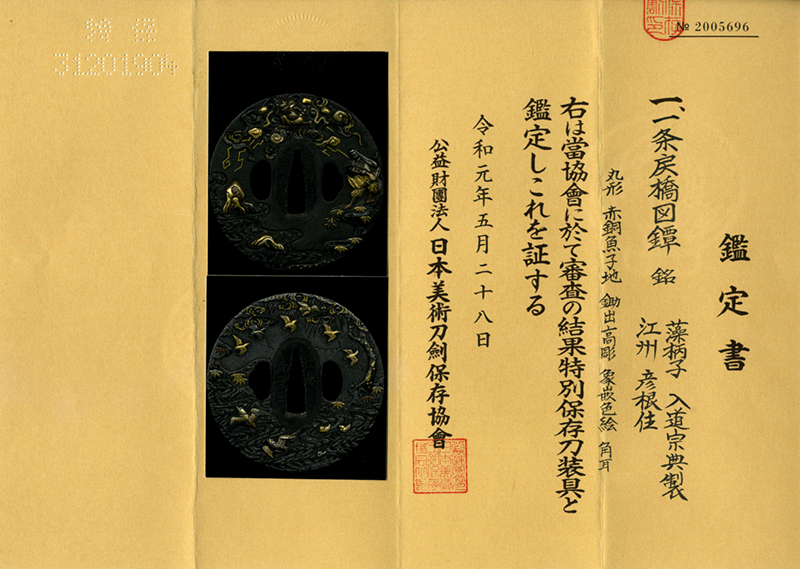 № 2005696
鑑定書
一、一条戻橋図鐔 銘 藻柄子 入道宗典製
江州 彦根住
丸形 赤銅魚子地 鋤出高彫 象嵌色絵 角耳
右は當協會に於て審査の結果特別保存刀装具と
鑑定しこれを証する
令和元年五月二十八日
公益財團法人 日本美術刀劍保存協會
特保
31201904